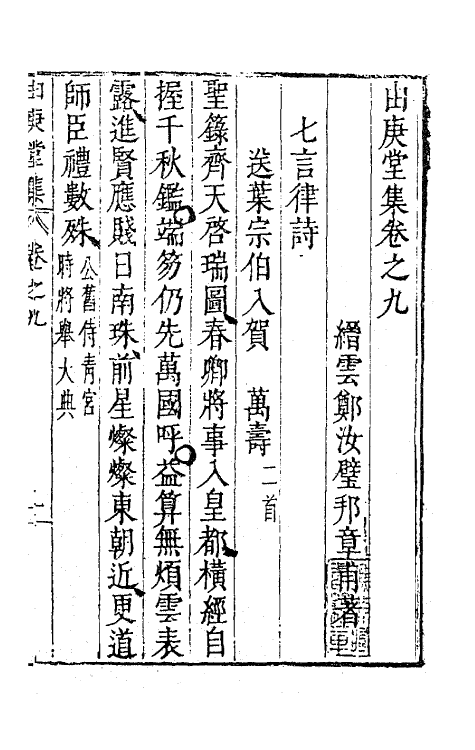 由庚堂集卷之九
縉雲鄭汝璧邦章甫著
七言律詩
送葉宗伯入賀　萬壽二首
聖籙齊天啓瑞圖春卿將事入皇都橫經自
握千秋鑑端笏仍先萬國呼益算無煩雲表
露進賢應賤日南珠前星燦燦東朝近更道
師臣禮數殊公舊侍青宮
時將舉大典
由庚堂集 卷之九